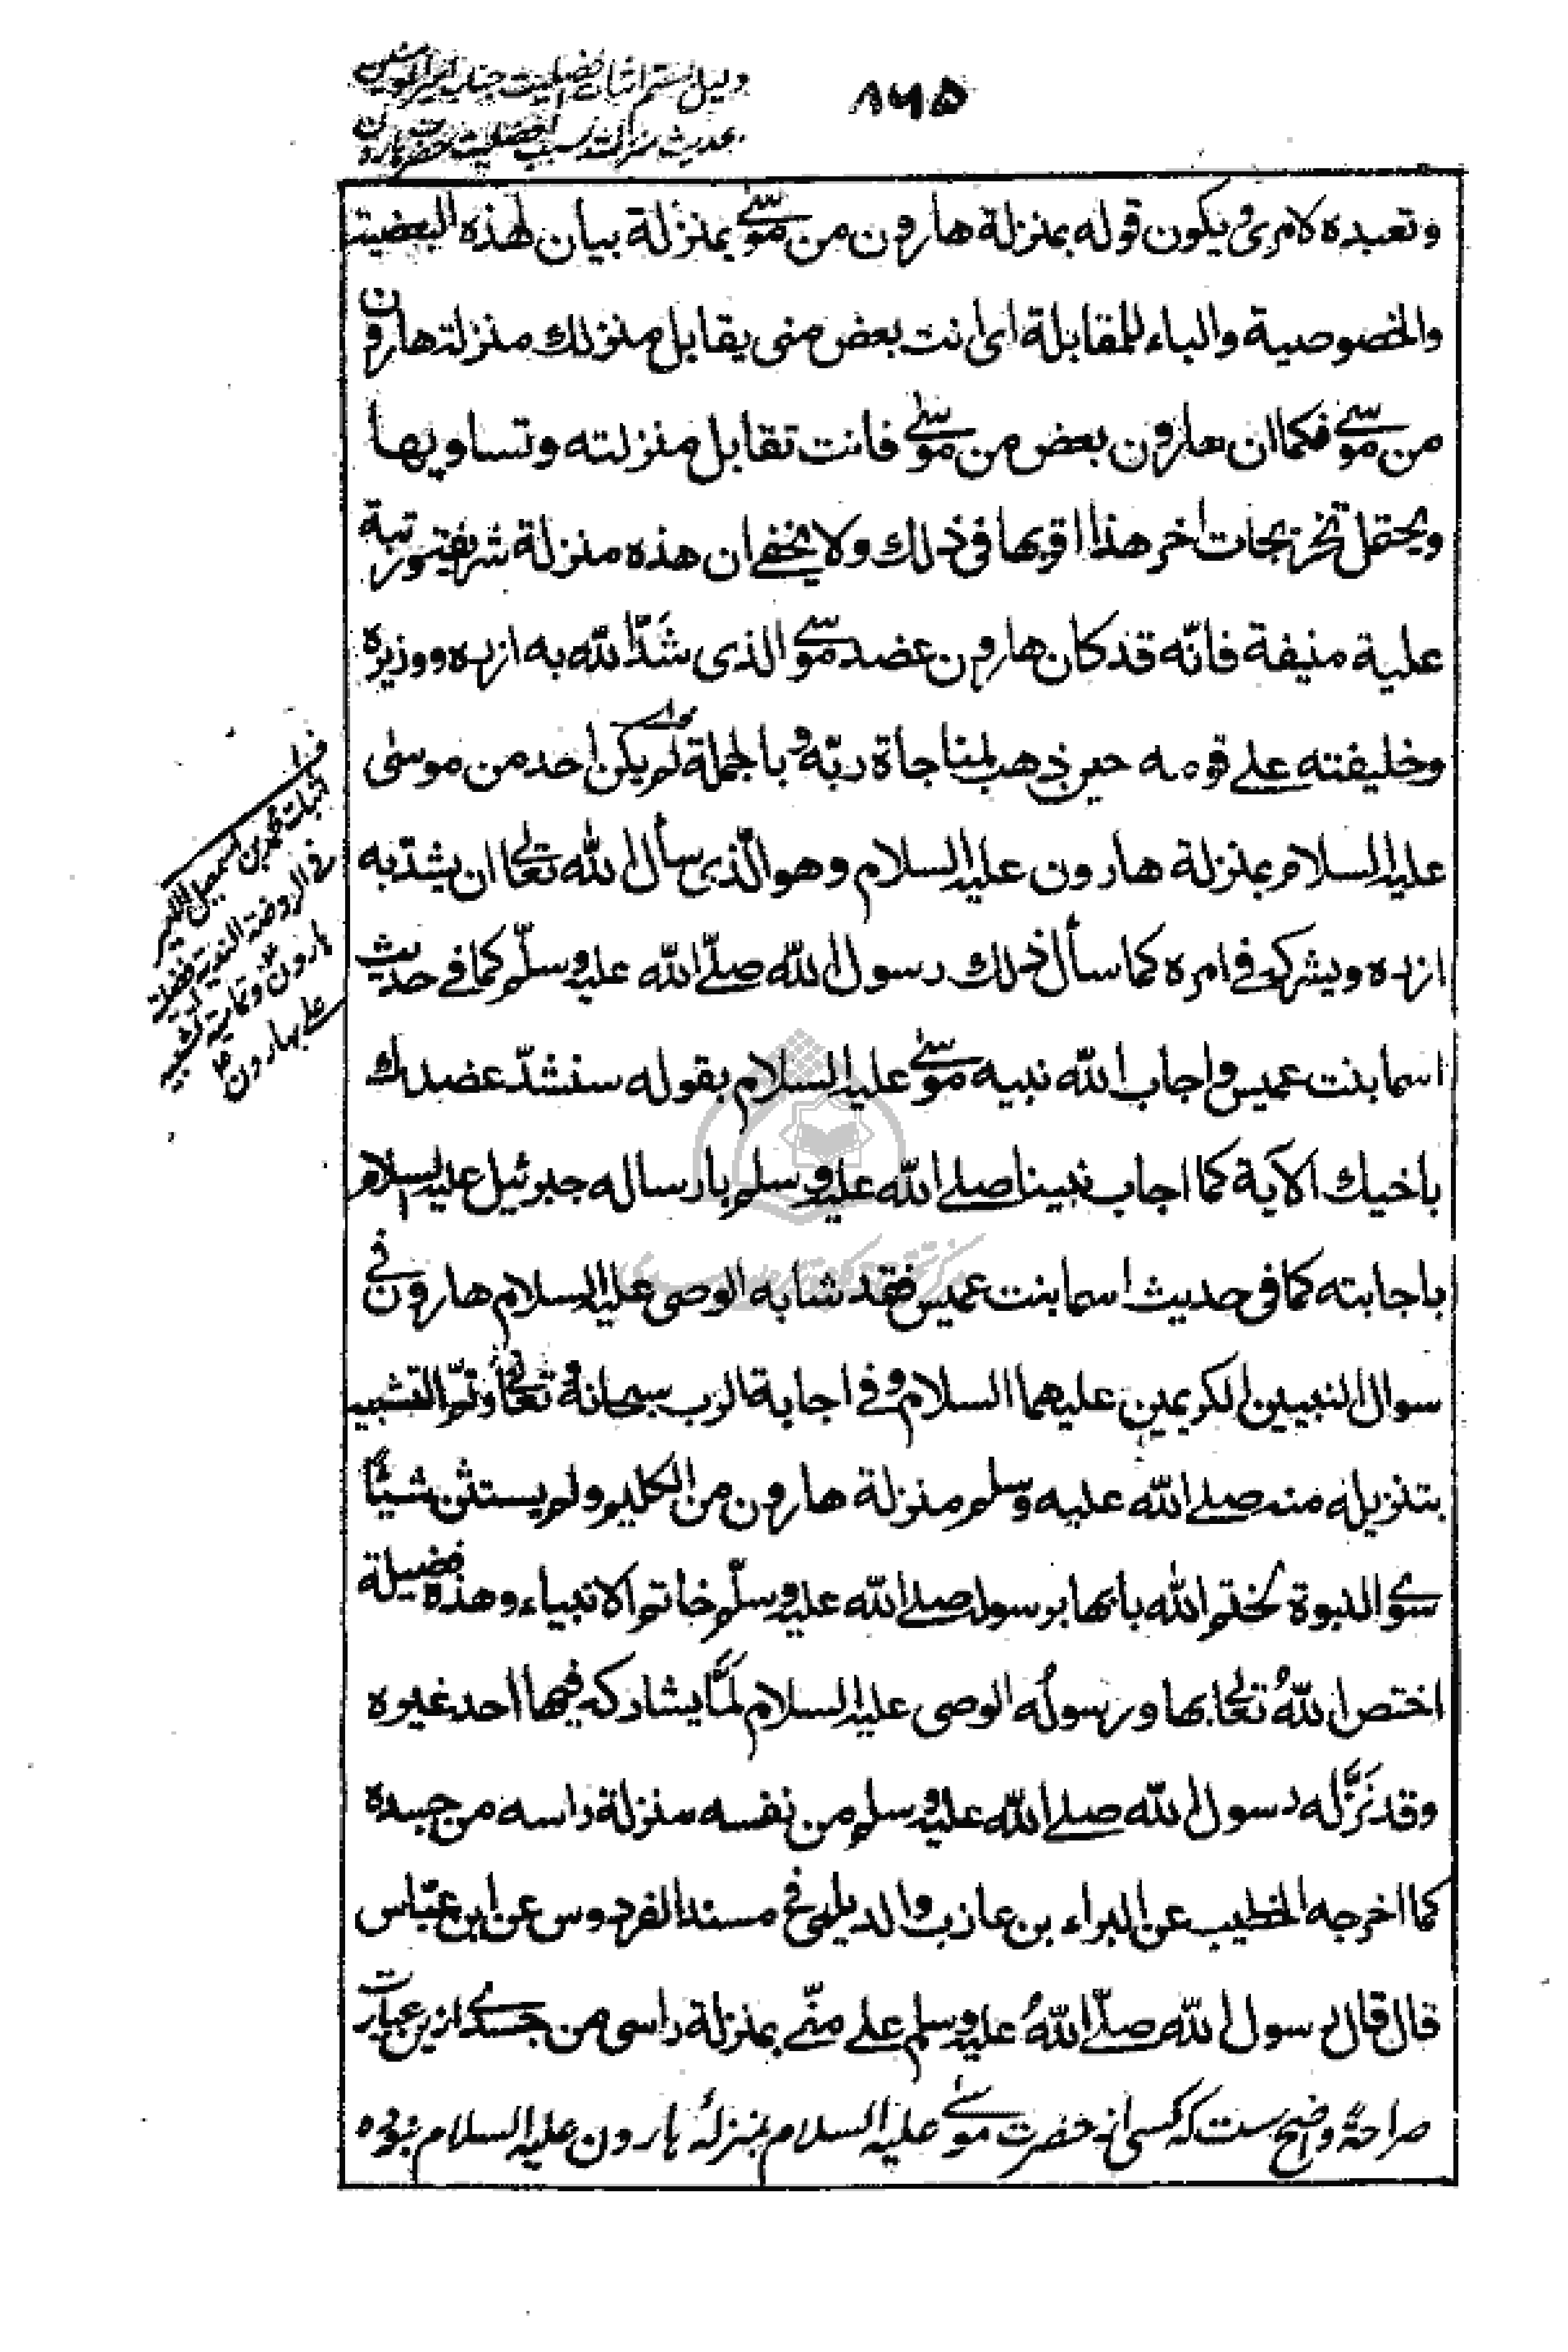 ٨٦٥
دلیل ہشتم اثبات افضلیت جناب امیرالمومنین
بحدیث منزلت بسبب افضلیت حضرت ہارون
وتعبده لامرئ ويكون قوله بمنزلة هارون من موسى بمنزلة بيان لهذه البعضية
والخصوصية والباء للمقابلة اى انت بعض منى يقابل منزلك منزلة هارون
من موسى فكما ان هارون بعض من موسى فانت تقابل منزلته وتساويها
ويحتمل تخريجات اخر هذا اقربها فى ذلك ولا يخفى ان هذه منزلة شريفة ورتبة
علية منيفة فانّه قد كان هارون عضد موسى الذى شدّ الله به ازره ووزيره
وخليفته على قومه حين ذهب لمناجاة ربّه وبالجملة لم يكن احد من موسى
عليه السلام بمنزلة هارون عليه السلام وهو الّذى سأل الله تعالى ان يشدّ به
ازره ويشركه فى امره كما سأل ذلك رسول الله صلّى الله عليه وسلّم كما فى حديث
اسما بنت عميس واجاب الله نبيه موسى عليه السلام بقوله سنشدّ عضدك
باخيك الآية كما اجاب نبينا صلى الله عليه وسلم بارساله جبرئيل عليه السلام
باجابته كما فى حديث اسما بنت عميس فقد شابه الوصى عليه السلام هارون فى
سوال النبيين الكريمين عليهما السلام وفى اجابة الرب سبحانه وتعالى وتمّ التشبيه
بتنزيله منه صلى الله عليه وسلم منزلة هارون من الكليم ولم يستثن شيئًا
سوى النبوة لختم الله بابها برسوله صلى الله عليه وسلّم خاتم الانبياء وهذه فضيلة
اختص اللهُ تعالى بها ورسولُه الوصى عليه السلام لمَّا يشاركه فيها احد غيره
وقد نَزَّله رسول الله صلى الله عليه وسلم من نفسه منزلة راسه من جسده
كما اخرجه الخطيب عن البراء بن عازب والديلمى فى مسند الفردوس عن ابن عبّاس
قال قال رسول الله صلّى اللهُ عليه وسلم على منّى بمنزلة راسى من جسدى ازین عبارت
صراحةً واضح ست که کسی از حضرت موسی علیه السلام بمنزلهٔ ہارون علیه السلام نبوده
اثبات محمد بن اسمعیل الامیر
فی الروضة الندیة فضیلت
ہارون ع وتمامیة تشبیہ
علی بہارون ع